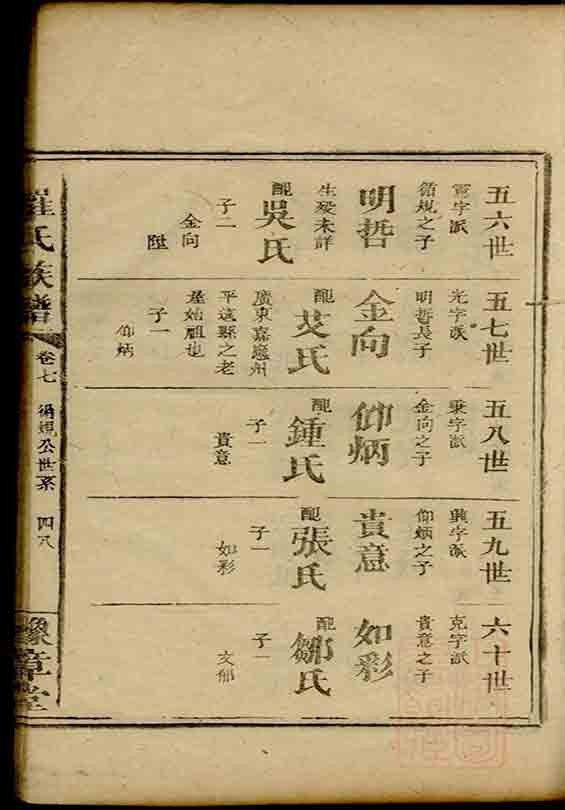 五六世
字派
規之子
明哲
生歿未詳
配吳氏
子二
金向
陞
五七世
光字派
明哲長子
金向
配艾氏
廣東嘉應州
平遠縣之老
屋始祖也
子一
仰炳
五八世
秉字派
金向之子
仰炳
配鍾氏
子一
貴意
五九世
興字派
仰炳之子
貴意
配張氏
子一
如彩
六十世
克字派
貴意之子
如彩
配鄒氏
子一
文郁
羅氏族譜
卷七
循規公世系
四八
豫章堂